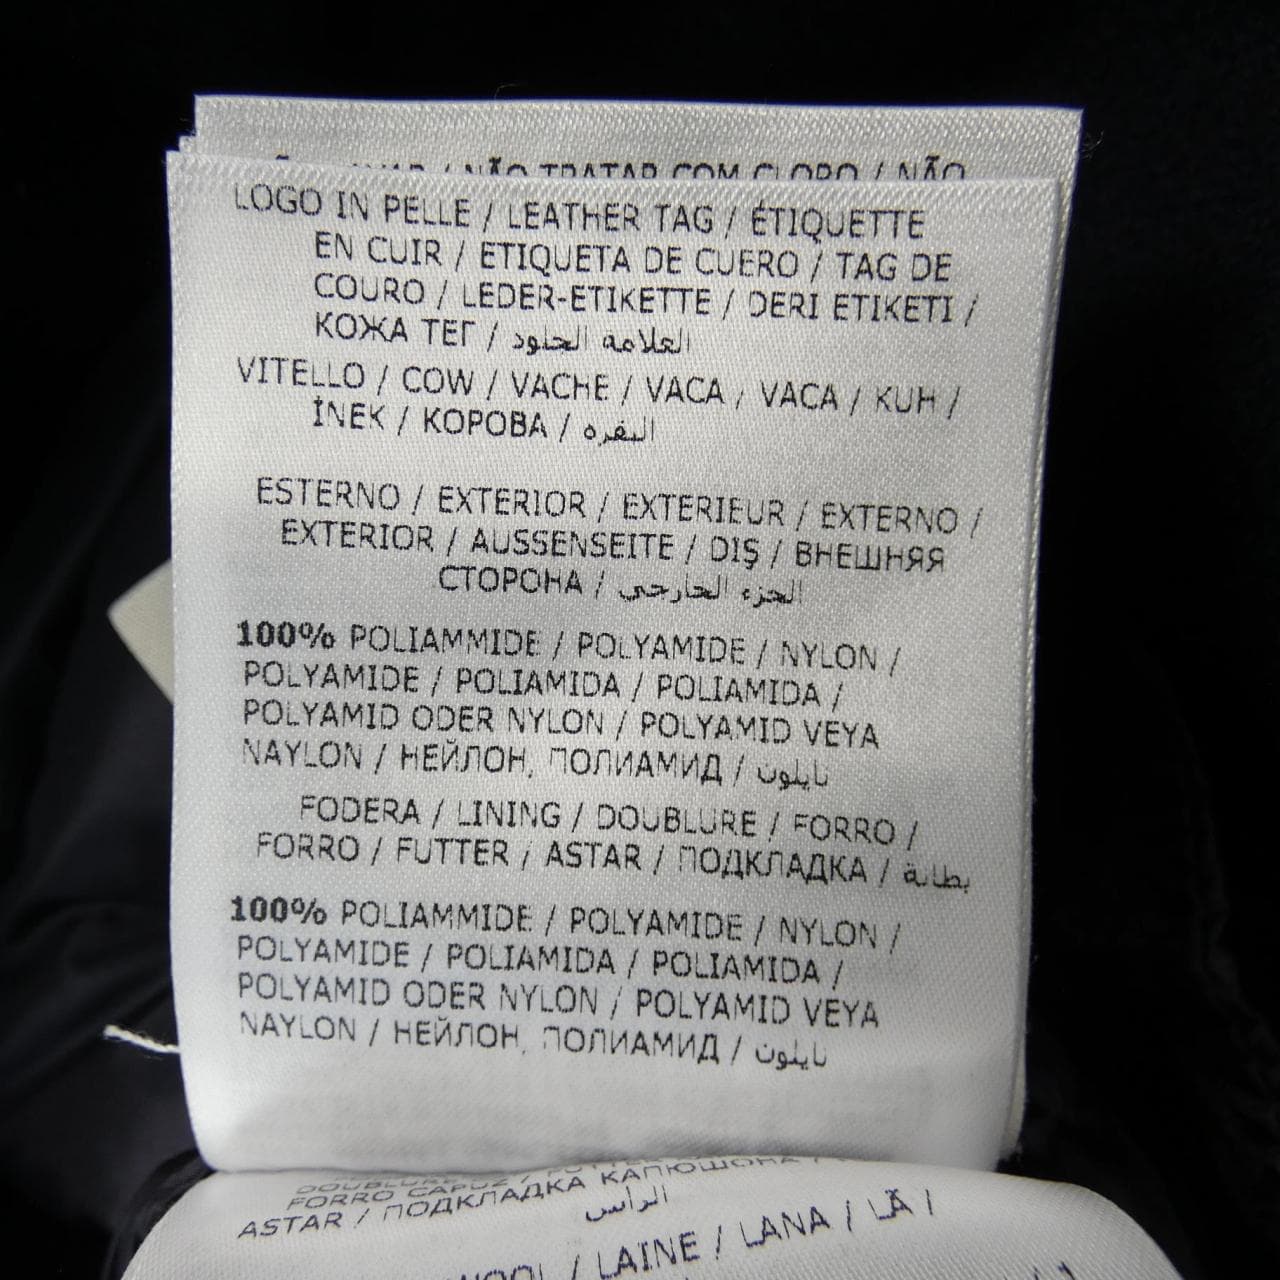 NÃO TRATAR COM CLORO / NÃO
LOGO IN PELLE / LEATHER TAG / ÉTIQUETTE
EN CUIR / ETIQUETA DE CUERO / TAG DE
COURO / LEDER-ETIKETTE / DERI ETIKETI /
КОЖА ТЕГ / العلامة الجلود
VITELLO / COW / VACHE / VACA / VACA / KUH /
İNEK / КОРОВА / البقره
ESTERNO / EXTERIOR / EXTERIEUR / EXTERNO /
EXTERIOR / AUSSENSEITE / DIŞ / ВНЕШНЯЯ
СТОРОНА / الجزء الخارجي
100% POLIAMMIDE / POLYAMIDE / NYLON /
POLYAMIDE / POLIAMIDA / POLIAMIDA /
POLYAMID ODER NYLON / POLYAMID VEYA
NAYLON / НЕЙЛОН, ПОЛИАМИД / نايلون
FODERA / LINING / DOUBLURE / FORRO /
FORRO / FUTTER / ASTAR / ПОДКЛАДКА / بطانة
100% POLIAMMIDE / POLYAMIDE / NYLON /
POLYAMIDE / POLIAMIDA / POLIAMIDA /
POLYAMID ODER NYLON / POLYAMID VEYA
NAYLON / НЕЙЛОН, ПОЛИАМИД / نايلون
DOUBLURE
FORRO CAPUZ /
ASTAR / ПОДКЛАДКА КАПЮШОНА /
الرأس
WOOL / LAINE / LANA / LÃ /